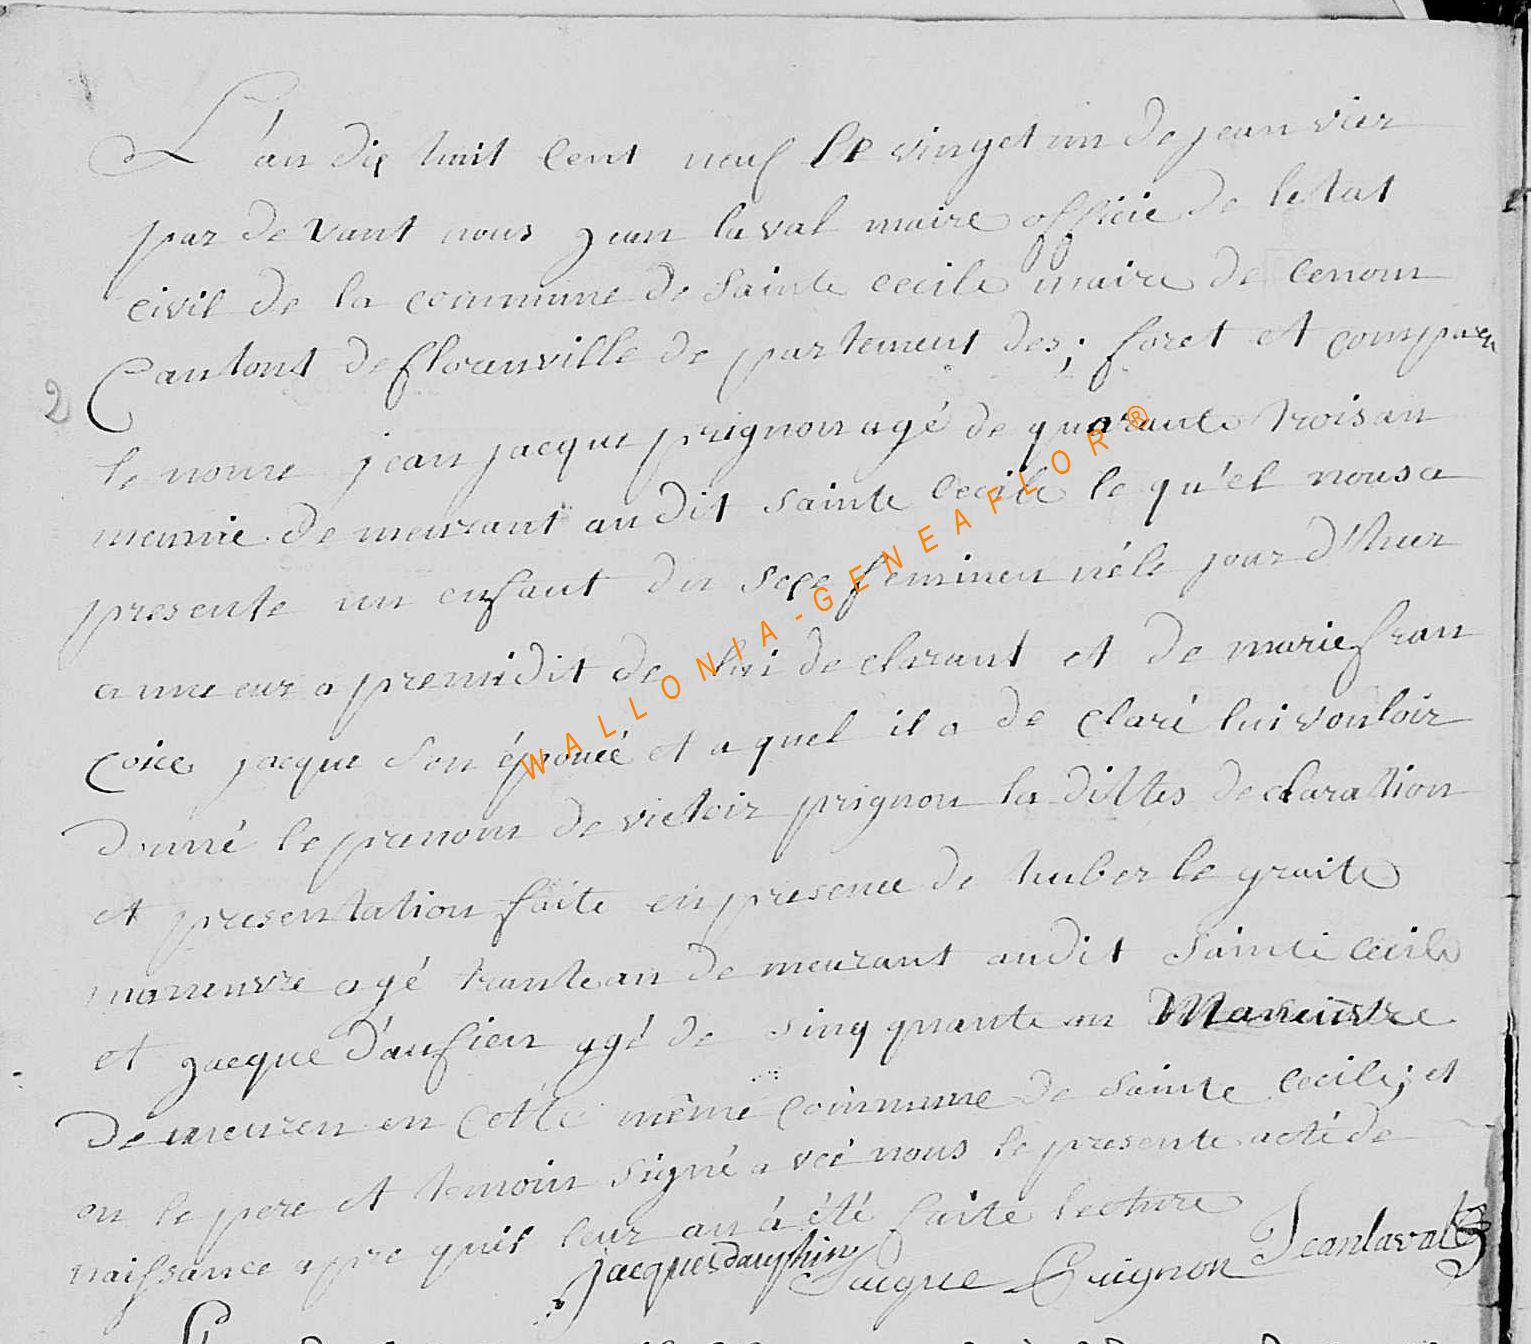 L'an dix huit cent neuf le vingt et un de jeanvier
par devant nous jean laval maire officie de letat
civil de la commune de Sainte Cecile mairie de
Cantons de floranville de partement des; foret et comparu
2
le nome jean jacque prignon agé de quarante trois an
demeurant au dit Sainte Cecile le qu'el nous a
presente un enfant du sexe feminen néle jour d'huer
de lui declarant et de marie fran
coice jacque son épouéé et a quel il a de claré lui vouloir
donné le prenom de victoir prignon la dittes declaration
et presentation faite en presence de huber le graite
manenvre agé trante an de meurant audit Sainte Cecile
et jacque agé de sinq quante an Maneuvre
Demeuren en cette même commune de Sainte Cecile; et
on le pere et temoin signé avec nous le presente acte de
naissance apre quil leur an á été faite lecture
jacques dauphin Jacque Prignon Jean laval
WALLONIA-GENEAFLOR®